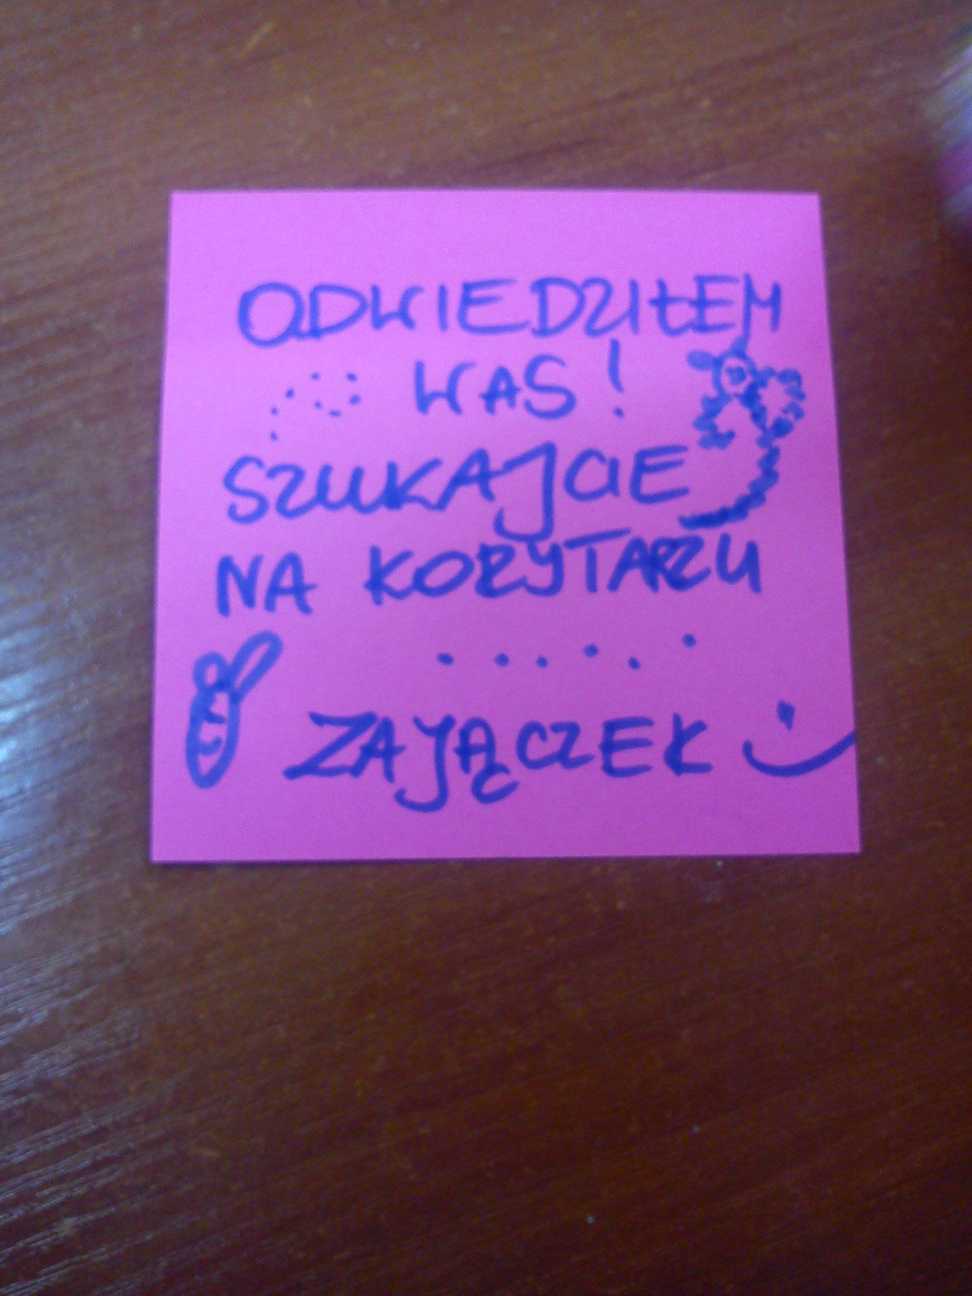 ODWIEDZIŁEM
WAS!
SZUKAJCIE
NA KORYTARZU
......
ZAJĄCZEK